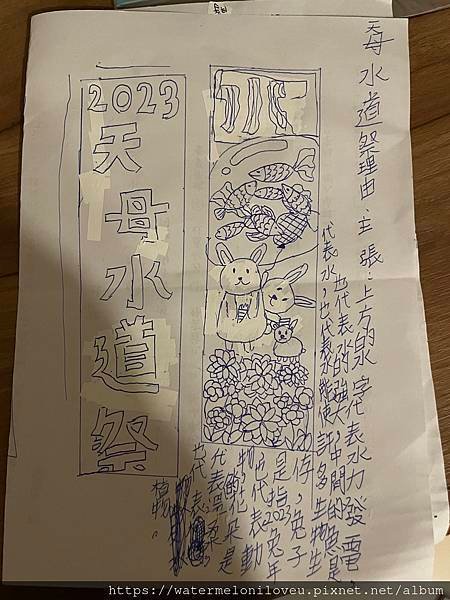 天母水道祭理由:主張:上方泉字代表水力發電,
也代表水的強大,中間的魚是
代表水,也代表水能使許多生物生
存,兔子
是指2023兔年
,也代表動
物,花朵是
代表
也代表
植物。
2023
天母水道祭
https://watermeloniloveu.pixnet.net/album